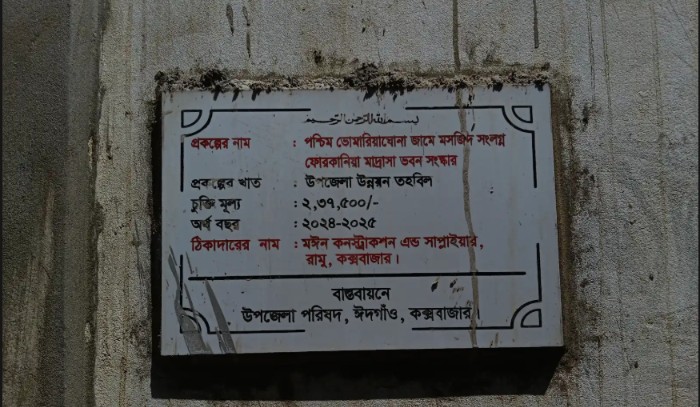 بسم الله الرحمن الرحيم
প্রকল্পের নাম : পশ্চিম ভোমারিয়াঘোনা জামে মসজিদ সংলগ্ন
ফোরকানিয়া মাদ্রাসা ভবন সংস্কার
প্রকল্পের খাত : উপজেলা উন্নয়ন তহবিল
চুক্তি মূল্য : ২,৩৭,৫০০/-
অর্থ বছর : ২০২৪-২০২৫
ঠিকাদারের নাম : মঈন কনস্ট্রাকশন এন্ড সাপ্লাইয়ার,
রামু, কক্সবাজার।
বাস্তবায়নে
উপজেলা পরিষদ, ঈদগাঁও, কক্সবাজার।